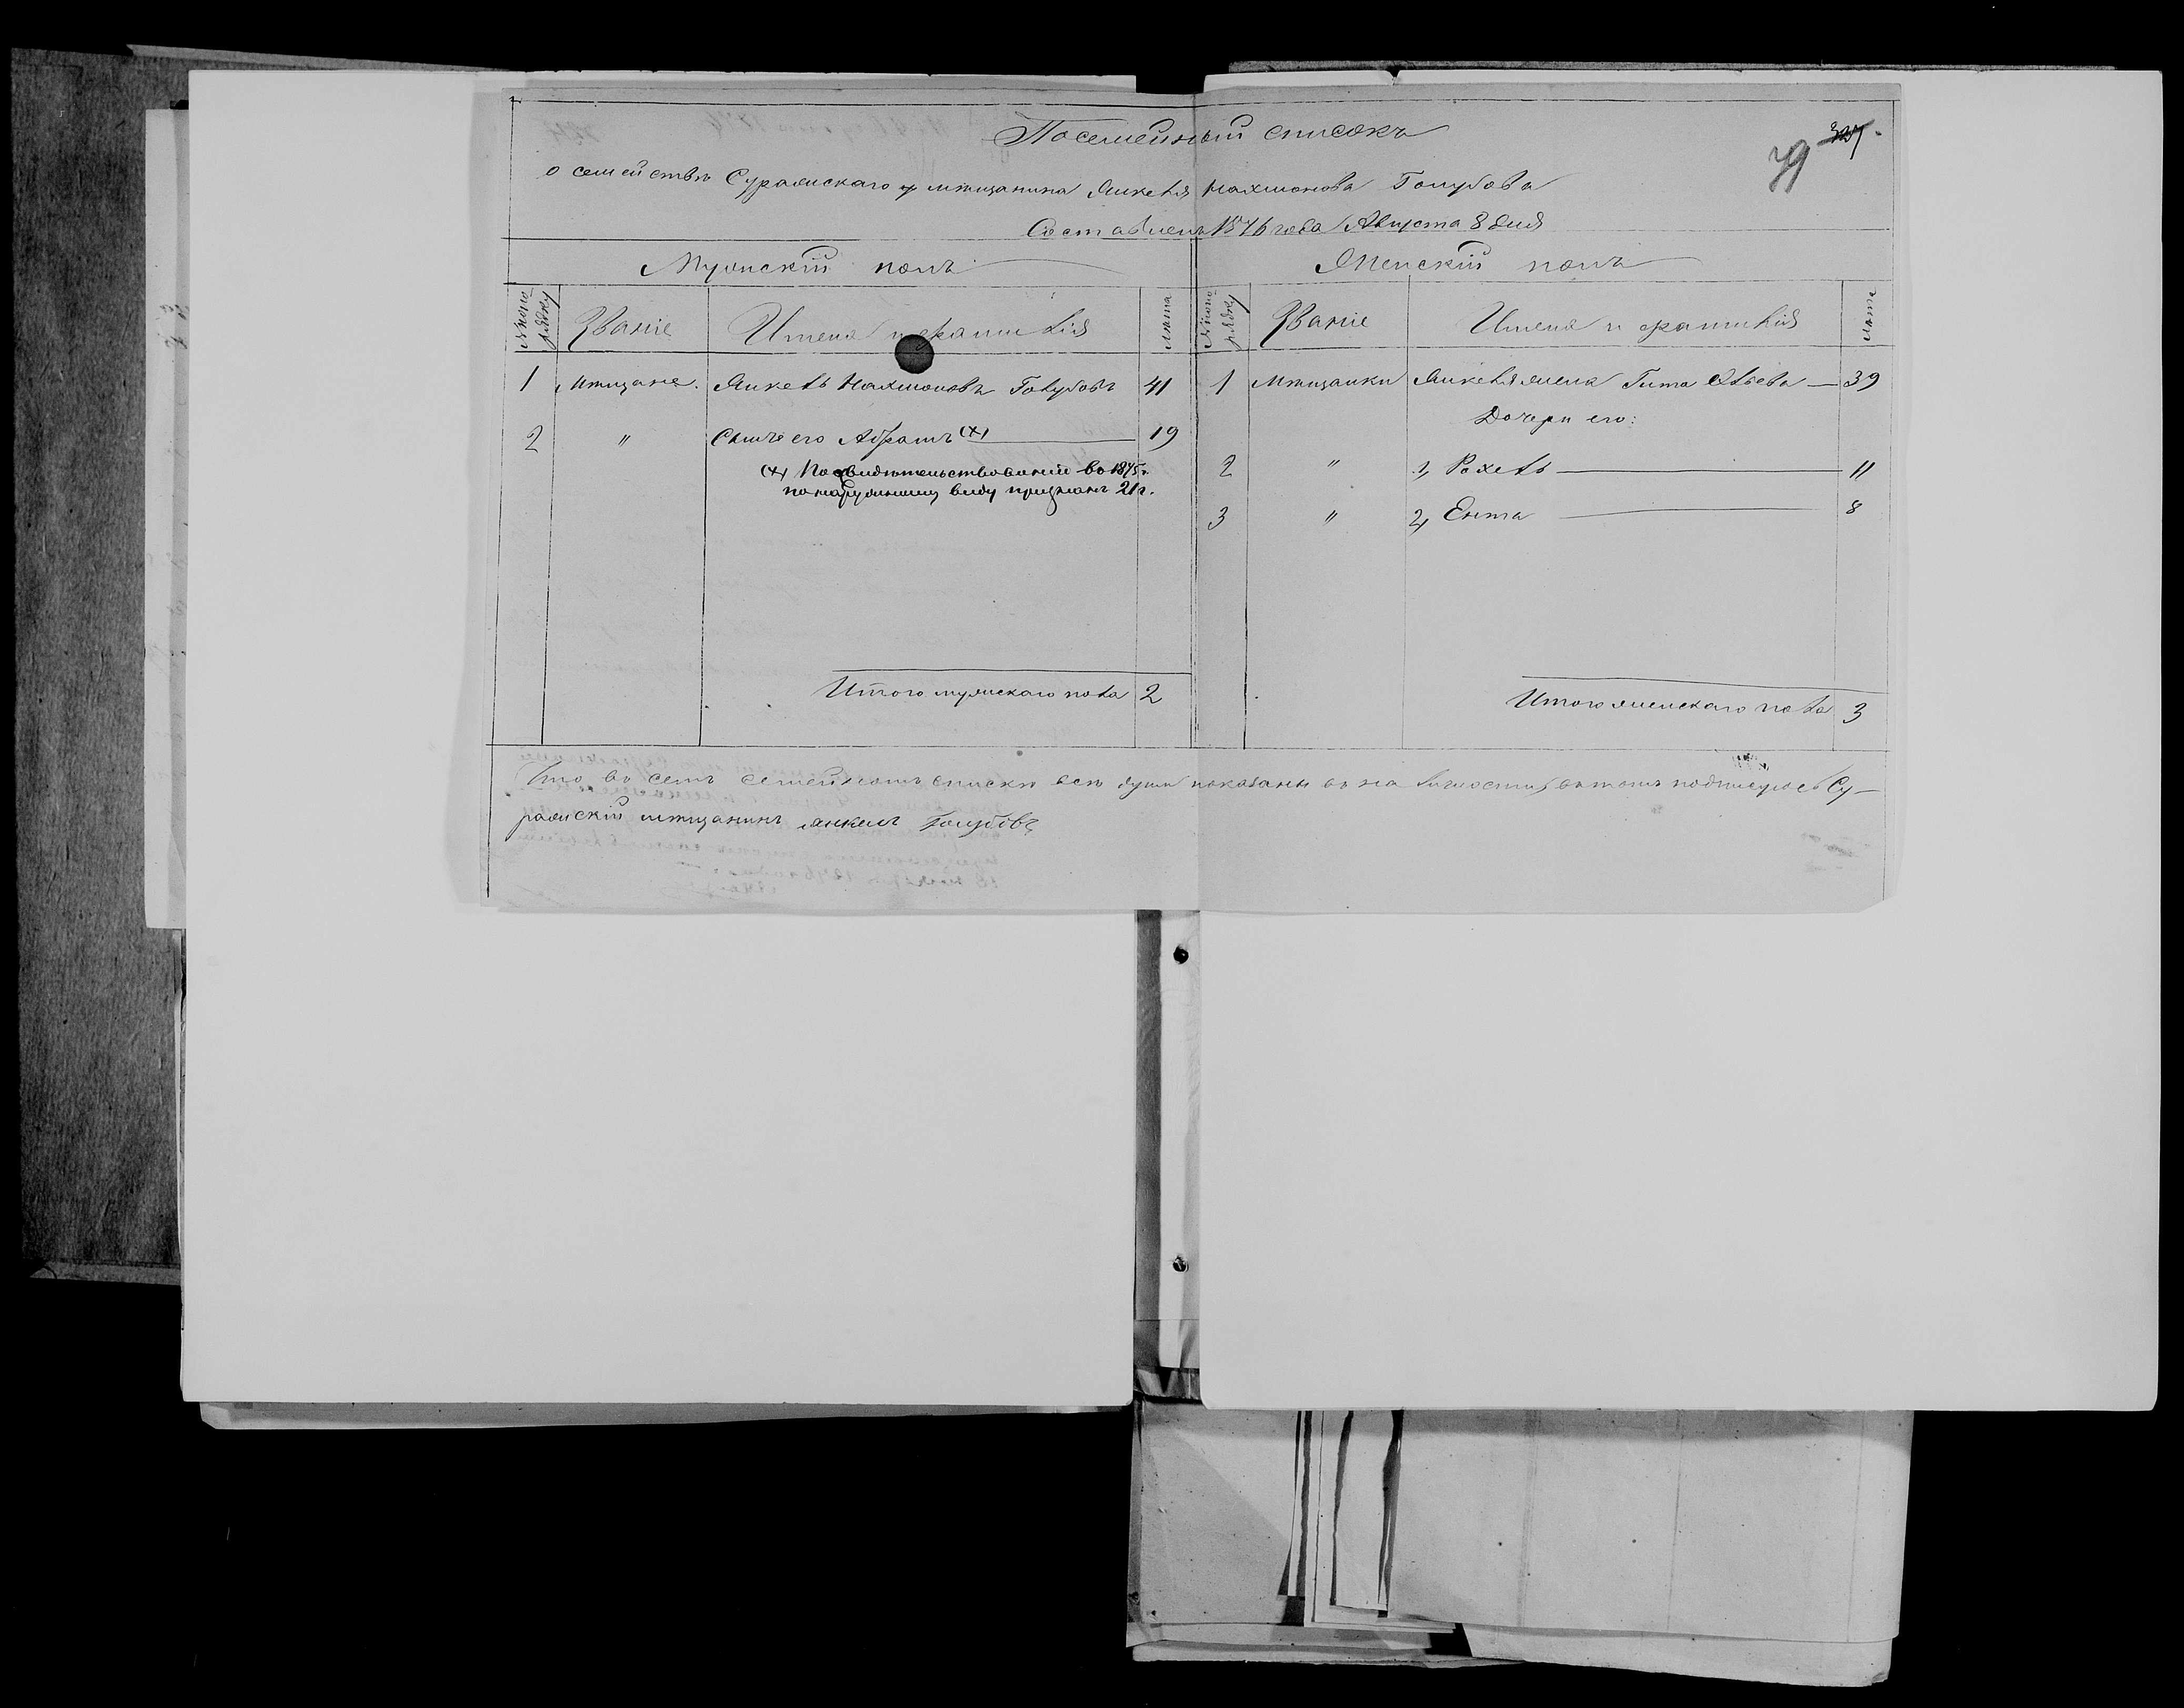 Посемейный списокъ
327.
79
о семействѣ Суражскаго мѣщанина Янкеля Нахмонова Голубова
Составленъ 1876 года Августа 8 дня
Мужскій полъ
Женскій полъ
№ по порядку
Званіе
Имена и фамилія
Лѣта
№ по порядку
Званіе
Имена и фамилія
Лѣта
1 Мѣщане. Янкель Нахмоновъ Голубовъ 41
2 " Сынъ его Абрамъ (х) 19
(х) По освидѣтельствованіи въ 1875 г.
по наружному виду признанъ 21 г.
Итого мужскаго пола 2
1 Мѣщанки Янкеля жена Гита 39
Дочери его:
2 " 1, Рохель 11
3 " 2, Ента 8
Итого женскаго пола 3
Что въ семъ семейномъ спискѣ всѣ души показаны въ наличности, въ томъ подписуюсь Су-
ражскій мѣщанинъ Янкель Голубовъ